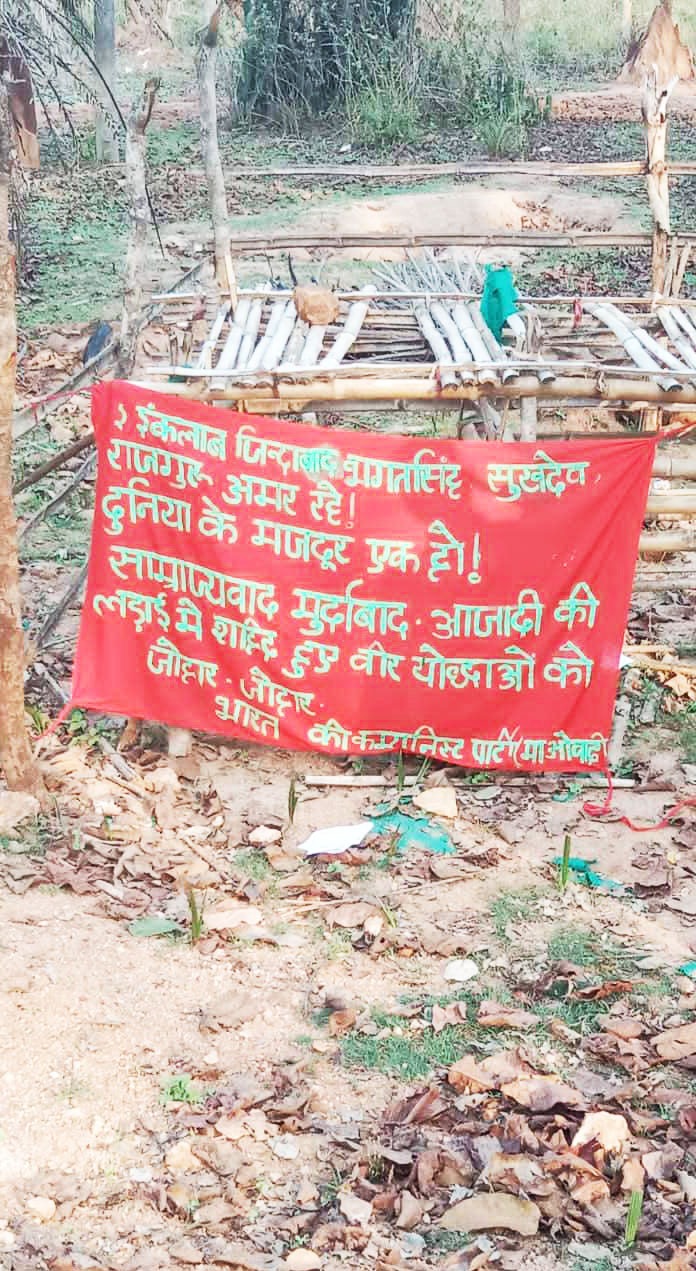 १ इंकलाब जिन्दाबाद भगतसिंह सुखदेव,
राजगुरु अमर रहे!
दुनिया के मजदूर एक हो!
साम्राज्यवाद मुर्दाबाद. आजादी की
लड़ाई मे शहिद हुए वीर योद्धाओं को
जोहार. जोहार.
भारत की कम्युनिस्ट पार्टी (माओवादी)